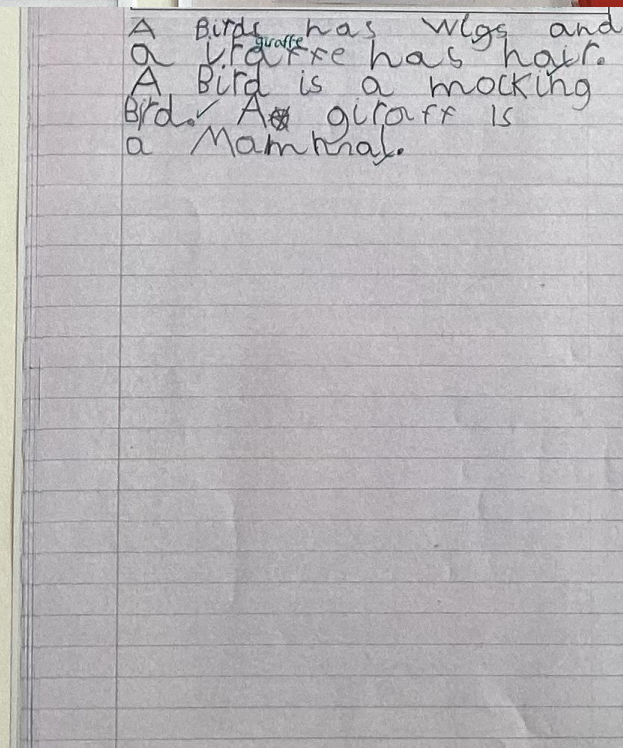 A Birds has wigs and
giraffe
a has hair.
A Bird is a mocking
Bird. A giraff is
a Mammal.